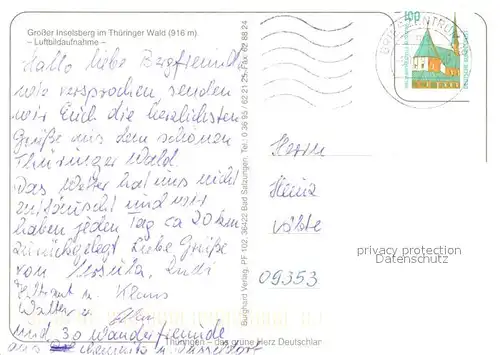 Großer Inselsberg im Thüringer Wald (916 m)
– Luftbildaufnahme –
Hallo liebe Bergfreunde
wie versprochen senden
wir Euch die herzlichsten
Grüße aus dem schönen
Thüringer Wald.
Das Wetter hat uns nicht
enttäuscht und wir
haben jeden Tag ca 20 km
zurückgelegt. Liebe Grüße
von Ursula, Rudi
Klaus
Walter u.
und 30 Wanderfreunde
aus Chemnitz u.
Burghard Verlag, PF 102, 36422 Bad Salzungen, Tel.: 0 36 95 / 62 21 25, Fax 62 88 24
Thüringen – das grüne Herz Deutschlan
100
Herrn
Heinz
09353
privacy protection
Datenschutz